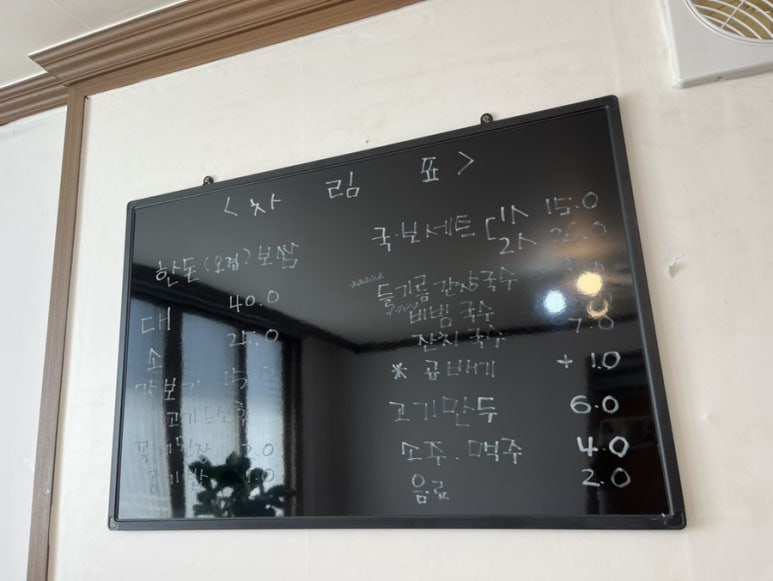 < 차 림 표 >
한돈(오겹)보쌈
대 40.0
소 25.0
맛보기 15.
고기
2.0
국·보세트 1人 15.0
2人 26.0
들기름간장국수
비빔국수
잔치국수 7.0
※ 곱배기 +1.0
고기만두 6.0
소주.맥주 4.0
음료 2.0